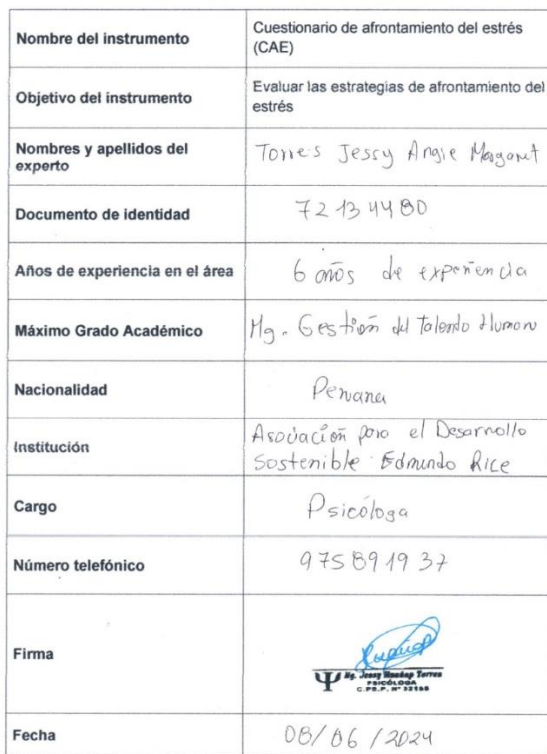 Nombre del instrumento
Cuestionario de afrontamiento del estrés
(CAE)
Objetivo del instrumento
Evaluar las estrategias de afrontamiento del
estrés
Nombres y apellidos del
experto
Torres Jessy Angie Margaret
Documento de identidad
72134480
Años de experiencia en el área
6 años de experiencia
Máximo Grado Académico
Mg. Gestión del Talento Humano
Nacionalidad
Peruana
Institución
Asociación para el Desarrollo
Sostenible Edmundo Rice
Cargo
Psicóloga
Número telefónico
975891937
Firma
Mg. Jessy Torres
PSICÓLOGA
C.PS.P. N°
Fecha
08/06/2024